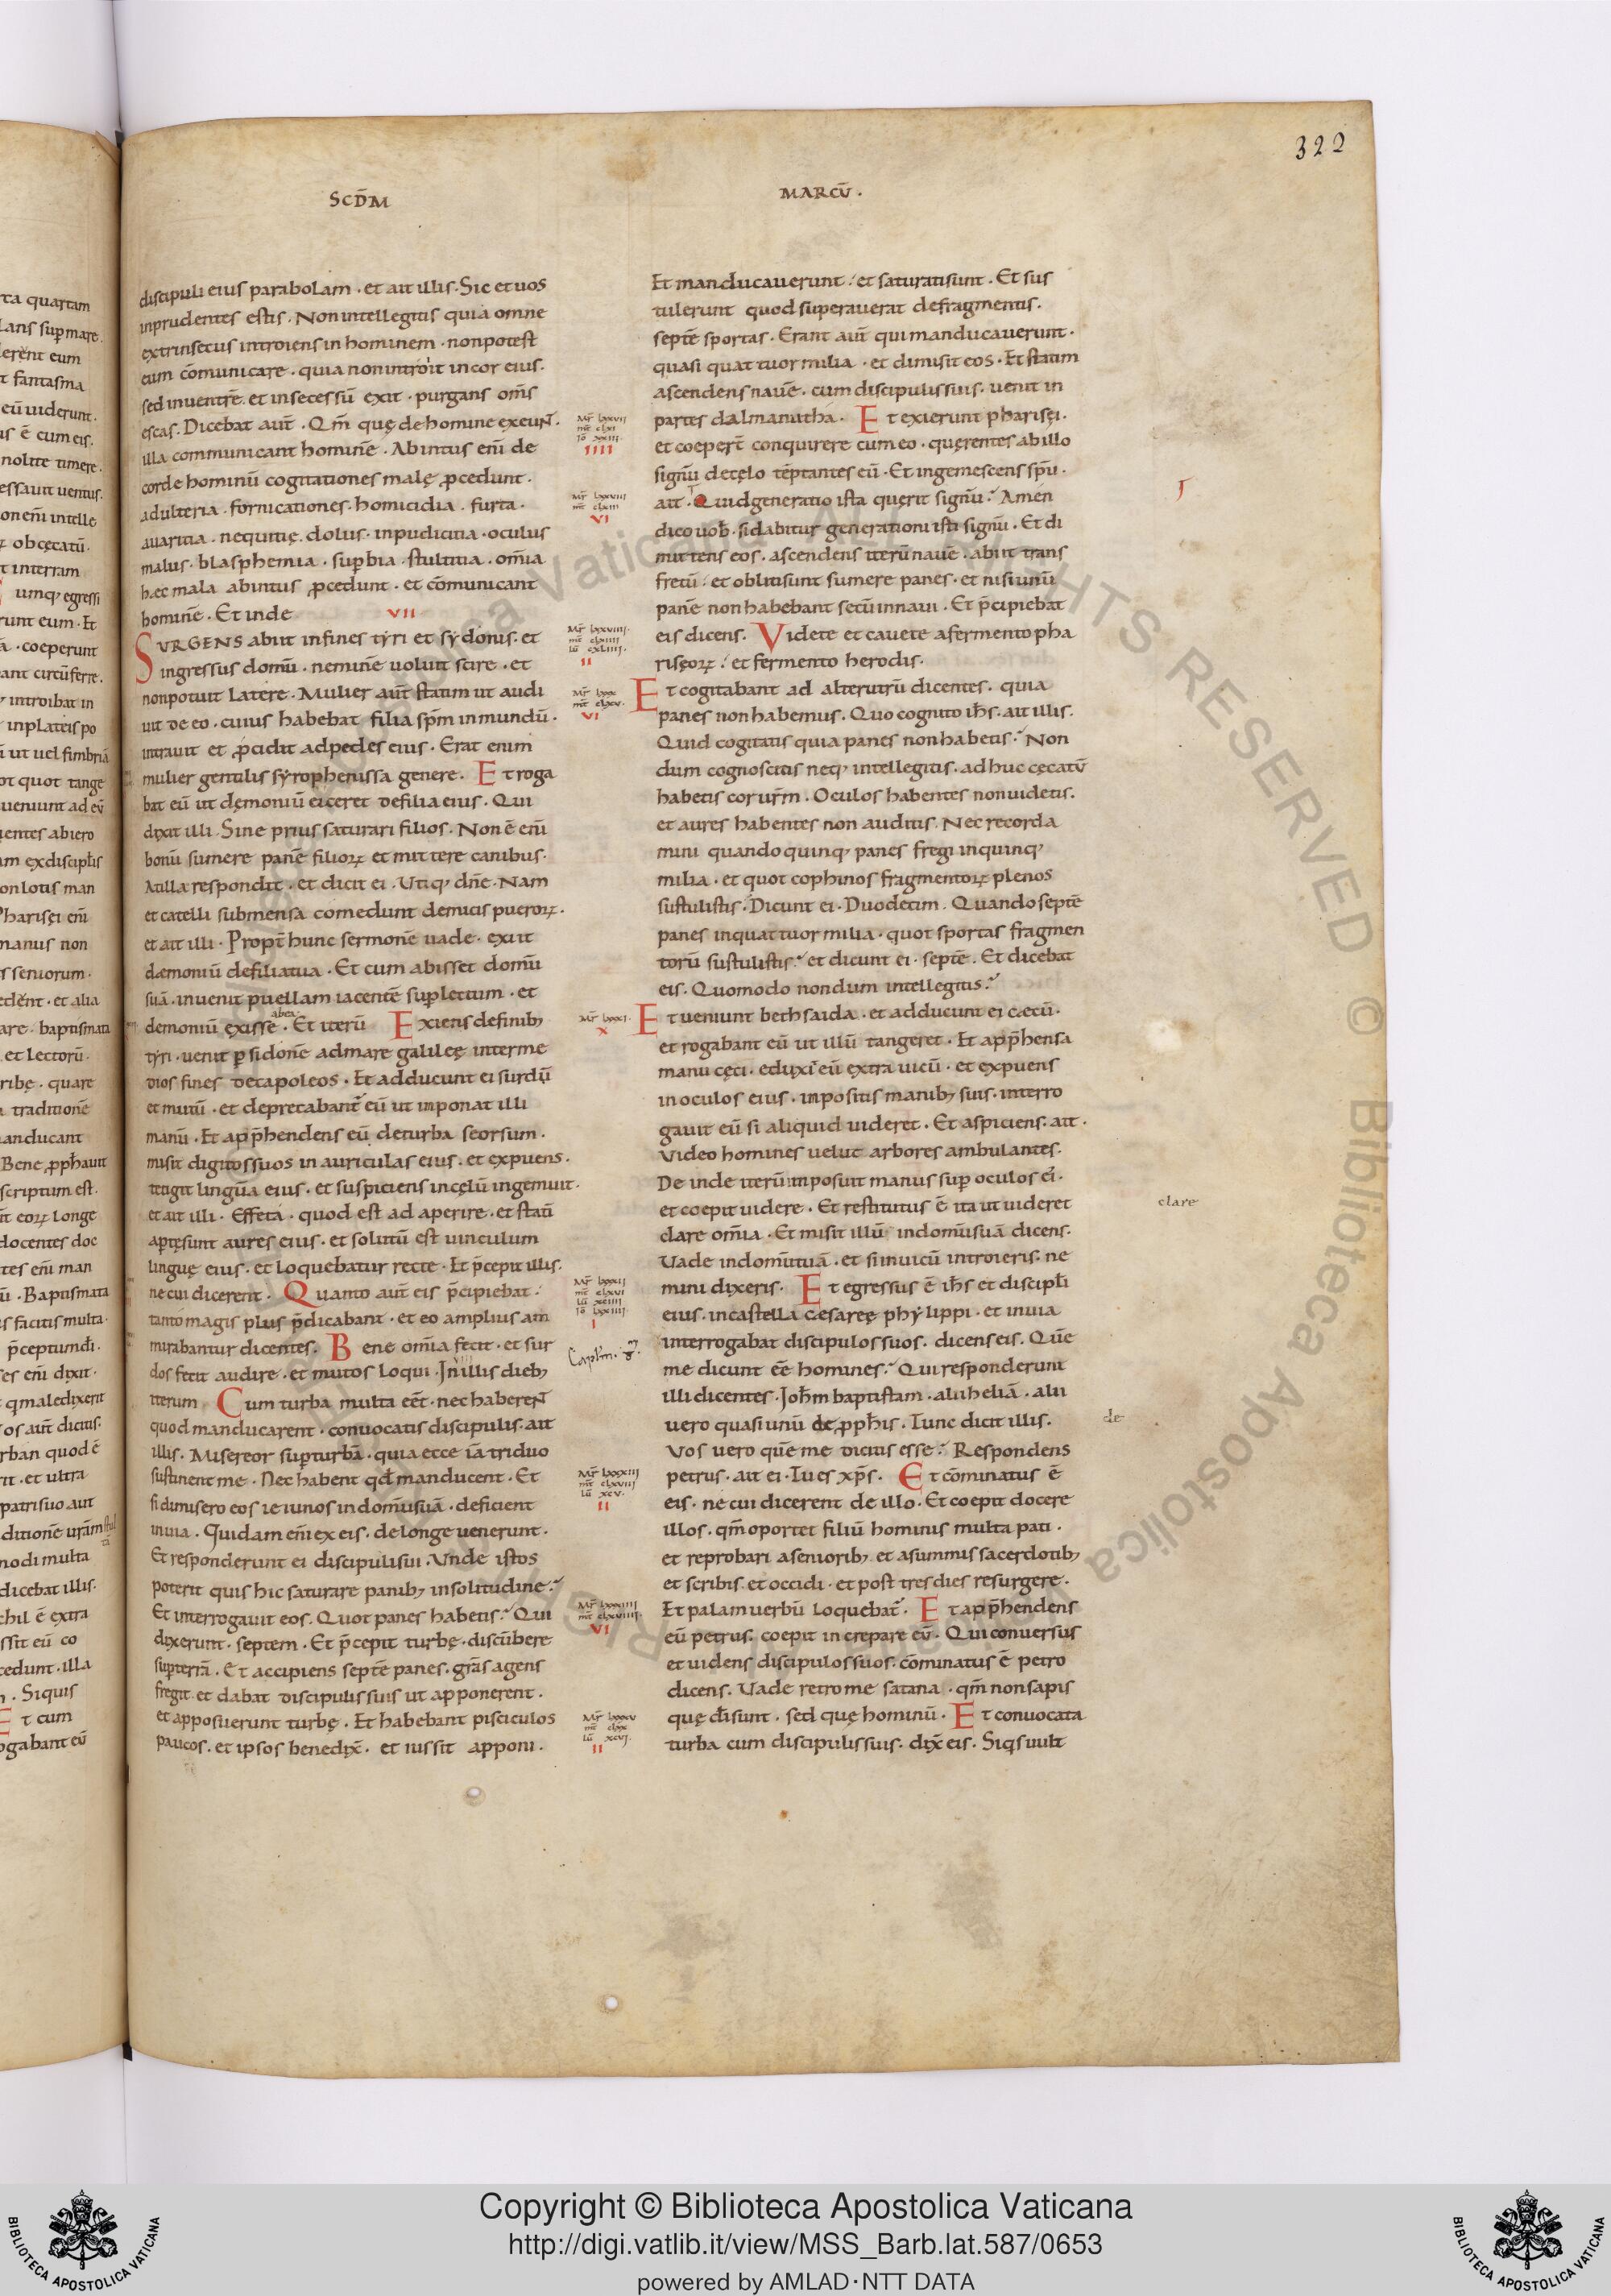 322
SCD̄M
MARCŪ ·
discipuli eius parabolam · et ait illis · Sic et uos
inprudentes estis · Non intellegitis quia omne
extrinsecus introiens in hominem · non potest
eum cōmunicare · quia non introit in cor eius ·
sed in uentrē · et in secessū exit · purgans om̄s
escas · Dicebat aut̄ · Qm̄ quę de homine exeuN̄ ·
illa communicant hominē · Ab intus eni̅ de
corde hominū cogitationes malę ꝓcedunt ·
adulteria · fornicationes · homicidia · furta ·
auaritia · nequitię · dolus · inpudicitia · oculus
malus · blasphemia · suꝑbia · stultitia · om̄ia
hæc mala ab intus ꝓcedunt · et cōmunicant
hominē · Et inde VII
SURGENS abiit in fines tẏri et sẏdonis · et
ingressus domū · neminē uoluit scire · et
non potuit latere · Mulier aut̄ statim ut audi
uit de eo · cuius habebat filia sp̄m inmundū ·
intrauit et ꝓcidit ad pedes eius · Erat enim
mulier gentilis sẏrophenissa genere · Et roga
bat eū ut dęmoniū eiceret de filia eius · Qui
dixit illi · Sine prius saturari filios · Non ē eni̅
bonū sumere panē filioꝝ et mittere canibus ·
At illa respondit · et dicit ei · Utiqꝫ dn̄e · Nam
et catelli sub mensa comedunt de micis pueroꝝ ·
et ait illi · Propt̄ hunc sermonē uade · exiit
dæmoniū de filia tua · Et cum abisset domū
suā · inuenit puellam iacentē suꝑ lectum · et
demoniū exisse · abea Et iterū Exiens de finibꝫ
tẏri · uenit ꝑ sidonē ad mare galileę inter me
dios fines decapoleos · Et adducunt ei surdū
et mutū · et deprecabant᷑ eū ut imponat illi
manū · Et app̄hendens eū de turba seorsum ·
misit digitos suos in auriculas eius · et expuens ·
tetigit linguā eius · et suspiciens in cęlū ingemuit ·
et ait illi · Effeta · quod est ad aperire · et statī
aꝑtę sunt aures eius · et solutū est uinculum
linguę eius · et loquebatur recte · Et p̄cepit illis ·
ne cui dicerent · Quanto aut̄ eis p̄cipiebat ·
tanto magis plus p̄dicabant · et eo amplius am
mirabantur dicentes · Bene om̄ia fecit · et sur
dos fecit audire · et mutos loqui · In illis diebꝫ
VIII
iterum Cum turba multa eēt · nec habereN̄
quod manducarent · conuocatis discipulis · ait
illis · Misereor suꝑ turbā · quia ecce iā triduo
sustinent me · Nec habent qd̄ manducent · Et
si dimisero eos ieiunos in domū suā · deficient
in uia · Quidam eni̅ ex eis · de longe uenerunt ·
Et responderunt ei discipuli sui · Unde istos
poterit quis hic saturare panibꝫ in solitudine ?
Et interrogauit eos · Quot panes habetis ? Qui
dixerunt · septem · Et p̄cepit turbę · discūbere
suꝑ terrā · Et accipiens septē panes · grās agens
fregit · et dabat discipulis suis ut apponerent ·
et apposuerunt turbę · Et habebant pisciculos
paucos · et ipsos benedix̄ · et iussit apponi ·
Mr̄ lxxvii
mt̄ clxi
Iō xxiii
IIII
Mr̄ lxxviii
mt̄ clxiii
VI
Mr̄ lxxviiii
mt̄ clxiiii
Lū cxliiii
II
Mr̄ lxxx
mt̄ clxv
VI
Mr̄ lxxxi
X
Mr̄ lxxxii
mt̄ clxvi
Lū xciiii
Iō lxxiiii
I
Mr̄ lxxxiii
mt̄ clxviii
Lū xcv
II
Mr̄ lxxxiiii
mt̄ clxviiii
VI
Mr̄ lxxxv
mt̄ clxx
Lū xcvi
II
Et manducauerunt · et saturati sunt · Et sus
tulerunt quod superauerat de fragmentis ·
septē sportas · Erant aut̄ qui manducauerunt ·
quasi quattuor milia · et dimisit eos · Et statim
ascendens nauē · cum discipulis suis · uenit in
partes dalmanutha · Et exierunt pharisęi ·
et coeper̄t conquirere cum eo · quęrentes ab illo
signū de cęlo tēptantes eū · Et ingemescens sp̄u ·
ait · Quid generatio ista quęrit signū ? Amen
dico uob̄ · si dabitur generationi isti signū · Et di
mittens eos · ascendens iterū nauē · abiit trans
fretū · et obliti sunt sumere panes · et nisi unū
panē non habebant secū in naui · Et p̄cipiebat
eis dicens · Videte et cauete a fermento pha
risęoꝝ · et fermento herodis ·
Et cogitabant ad alterutrū dicentes · quia
panes non habemus · Quo cognito ih̄s · ait illis ·
Quid cogitatis quia panes non habetis ? Non
dum cognoscitis neqꝫ intellegitis · adhuc cęcatū
habetis cor ur̄m · Oculos habentes non uidetis ·
et aures habentes non auditis · Nec recorda
mini quando quinqꝫ panes fregi in quinqꝫ
milia · et quot cophinos fragmentoꝝ plenos
sustulistis · Dicunt ei · Duodecim · Quando septē
panes in quattuor milia · quot sportas fragmen
torū sustulistis ? et dicunt ei · septē · Et dicebat
eis · Quomodo nondum intellegitis ?
Et ueniunt bethsaida · et adducunt ei cæcū ·
et rogabant eū ut illū tangeret · Et app̄hensa
manu cęci · eduxit eū extra uicū · et expuens
in oculos eius · impositis manibꝫ suis · interro
gauit eū si aliquid uideret · Et aspiciens · ait ·
Video homines uelut arbores ambulantes ·
Deinde iterū imposuit manus suꝑ oculos ei᷒ ·
et coepit uidere · Et restitutus ē ita ut uideret
clare om̄ia · Et misit illū in domū suā dicens ·
Uade in domū tuā · et si in uicū introieris · ne
mini dixeris · Et egressus ē ih̄s et discipl̄i
eius · in castella cæsareę phẏlippi · et in uia
interrogabat discipulos suos · dicens eis · Quē
me dicunt eē homines ? Qui responderunt
illi dicentes · Joh̄m baptistam · alii heliā · alii
uero quasi unū de ꝓph̄is · Tunc dicit illis ·
Vos uero quē me dicitis esse ? Respondens
petrus · ait ei · Tu es xp̄s · Et cōminatus ē
eis · ne cui dicerent de illo · Et coepit docere
illos · qm̄ oportet filiū hominis multa pati ·
et reprobari a senioribꝫ et a summis sacerdotibꝫ
et scribis · et occidi · et post tres dies resurgere ·
Et palam uerbū loquebat᷑ · Et app̄hendens
eū petrus · coepit increpare eū · Qui conuersus
et uidens discipulos suos · cōminatus ē petro
dicens · Uade retro me satana · qm̄ non sapis
quę dī sunt · sed quę hominū · Et conuocata
turba cum discipulis suis · dix̄ eis · Siqs uult
clare
de
Copyright © Biblioteca Apostolica Vaticana
http://digi.vatlib.it/view/MSS_Barb.lat.587/0653
powered by AMLAD·NTT DATA
BIBLIOTECA APOSTOLICA VATICANA
BIBLIOTECA APOSTOLICA VATICANA